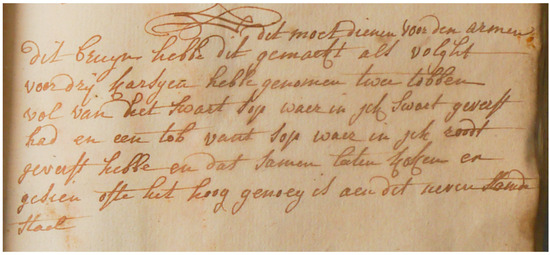 dit moet dienen voor den armen
dit bruyn hebbe dit gemackt als volght
voor drij karsyea hebbe genomen twee tobben
vol van het swart sop waer in jck swart geverft
had en een tob vant sop waer in jck roodt
geverft hebbe en dat samen laten koken en
gesien ofte het hoog genoeg is aen dit neven
Stael